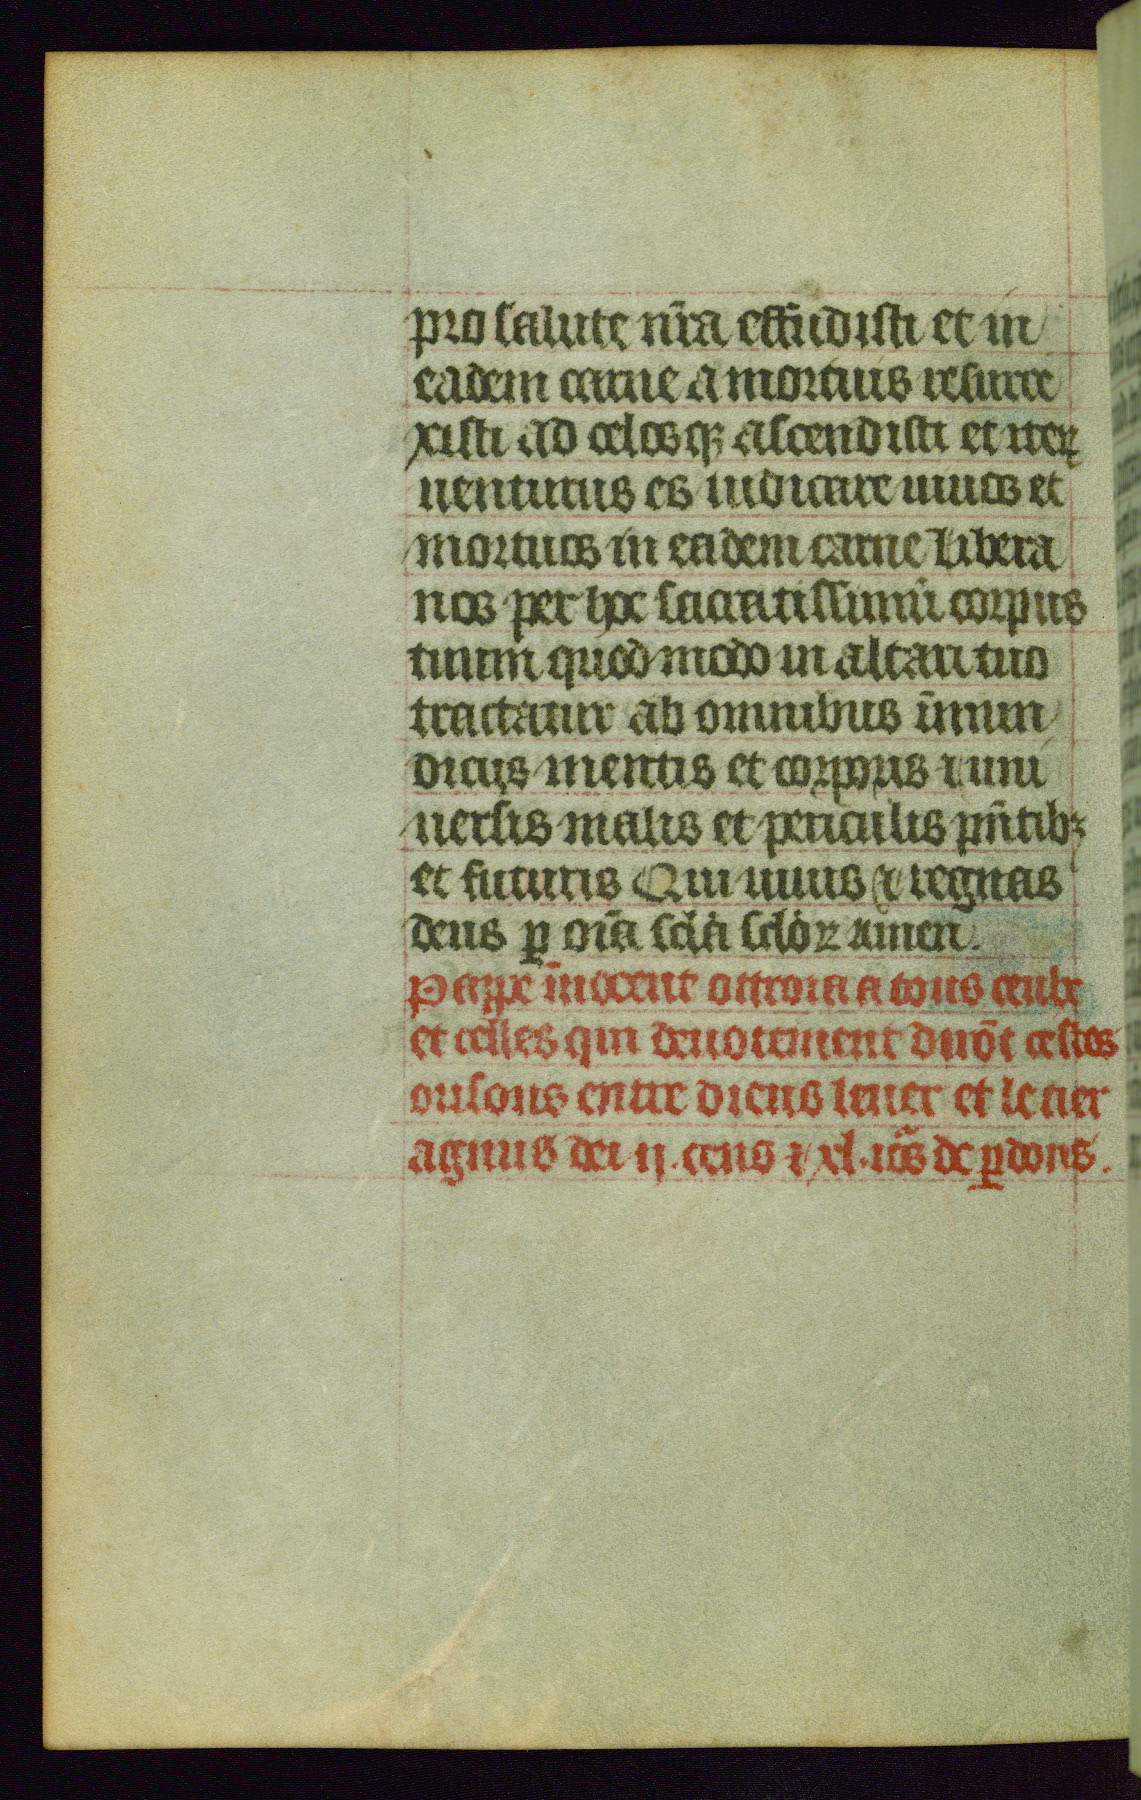 pro salute nr̄a effūdisti et in
eadem carne a mortuis resurre
xisti ad celosqꝫ ascendisti et iterꝝ
uenturus es iudicare uiuos et
mortuos in eadem carne Libera
nos per hoc sacratissimū corpus
tuum quod modo in altari tuo
tractatur ab omnibus īmun
dicijs mentis et corporis ⁊ uni
uersis malis et periculis pn̄tibꝫ
et futuris Qui uiuis ⁊ regnas
deus ꝑ oīa sclā sclōꝝ amen.
Pappe īnocent ottroia a tous ceulx
et celles qui deuotement diiōt cestes
orisons entre dieus leuer et le tier
agnus dei ij. cens ⁊ xl. iōs de ꝑdons.